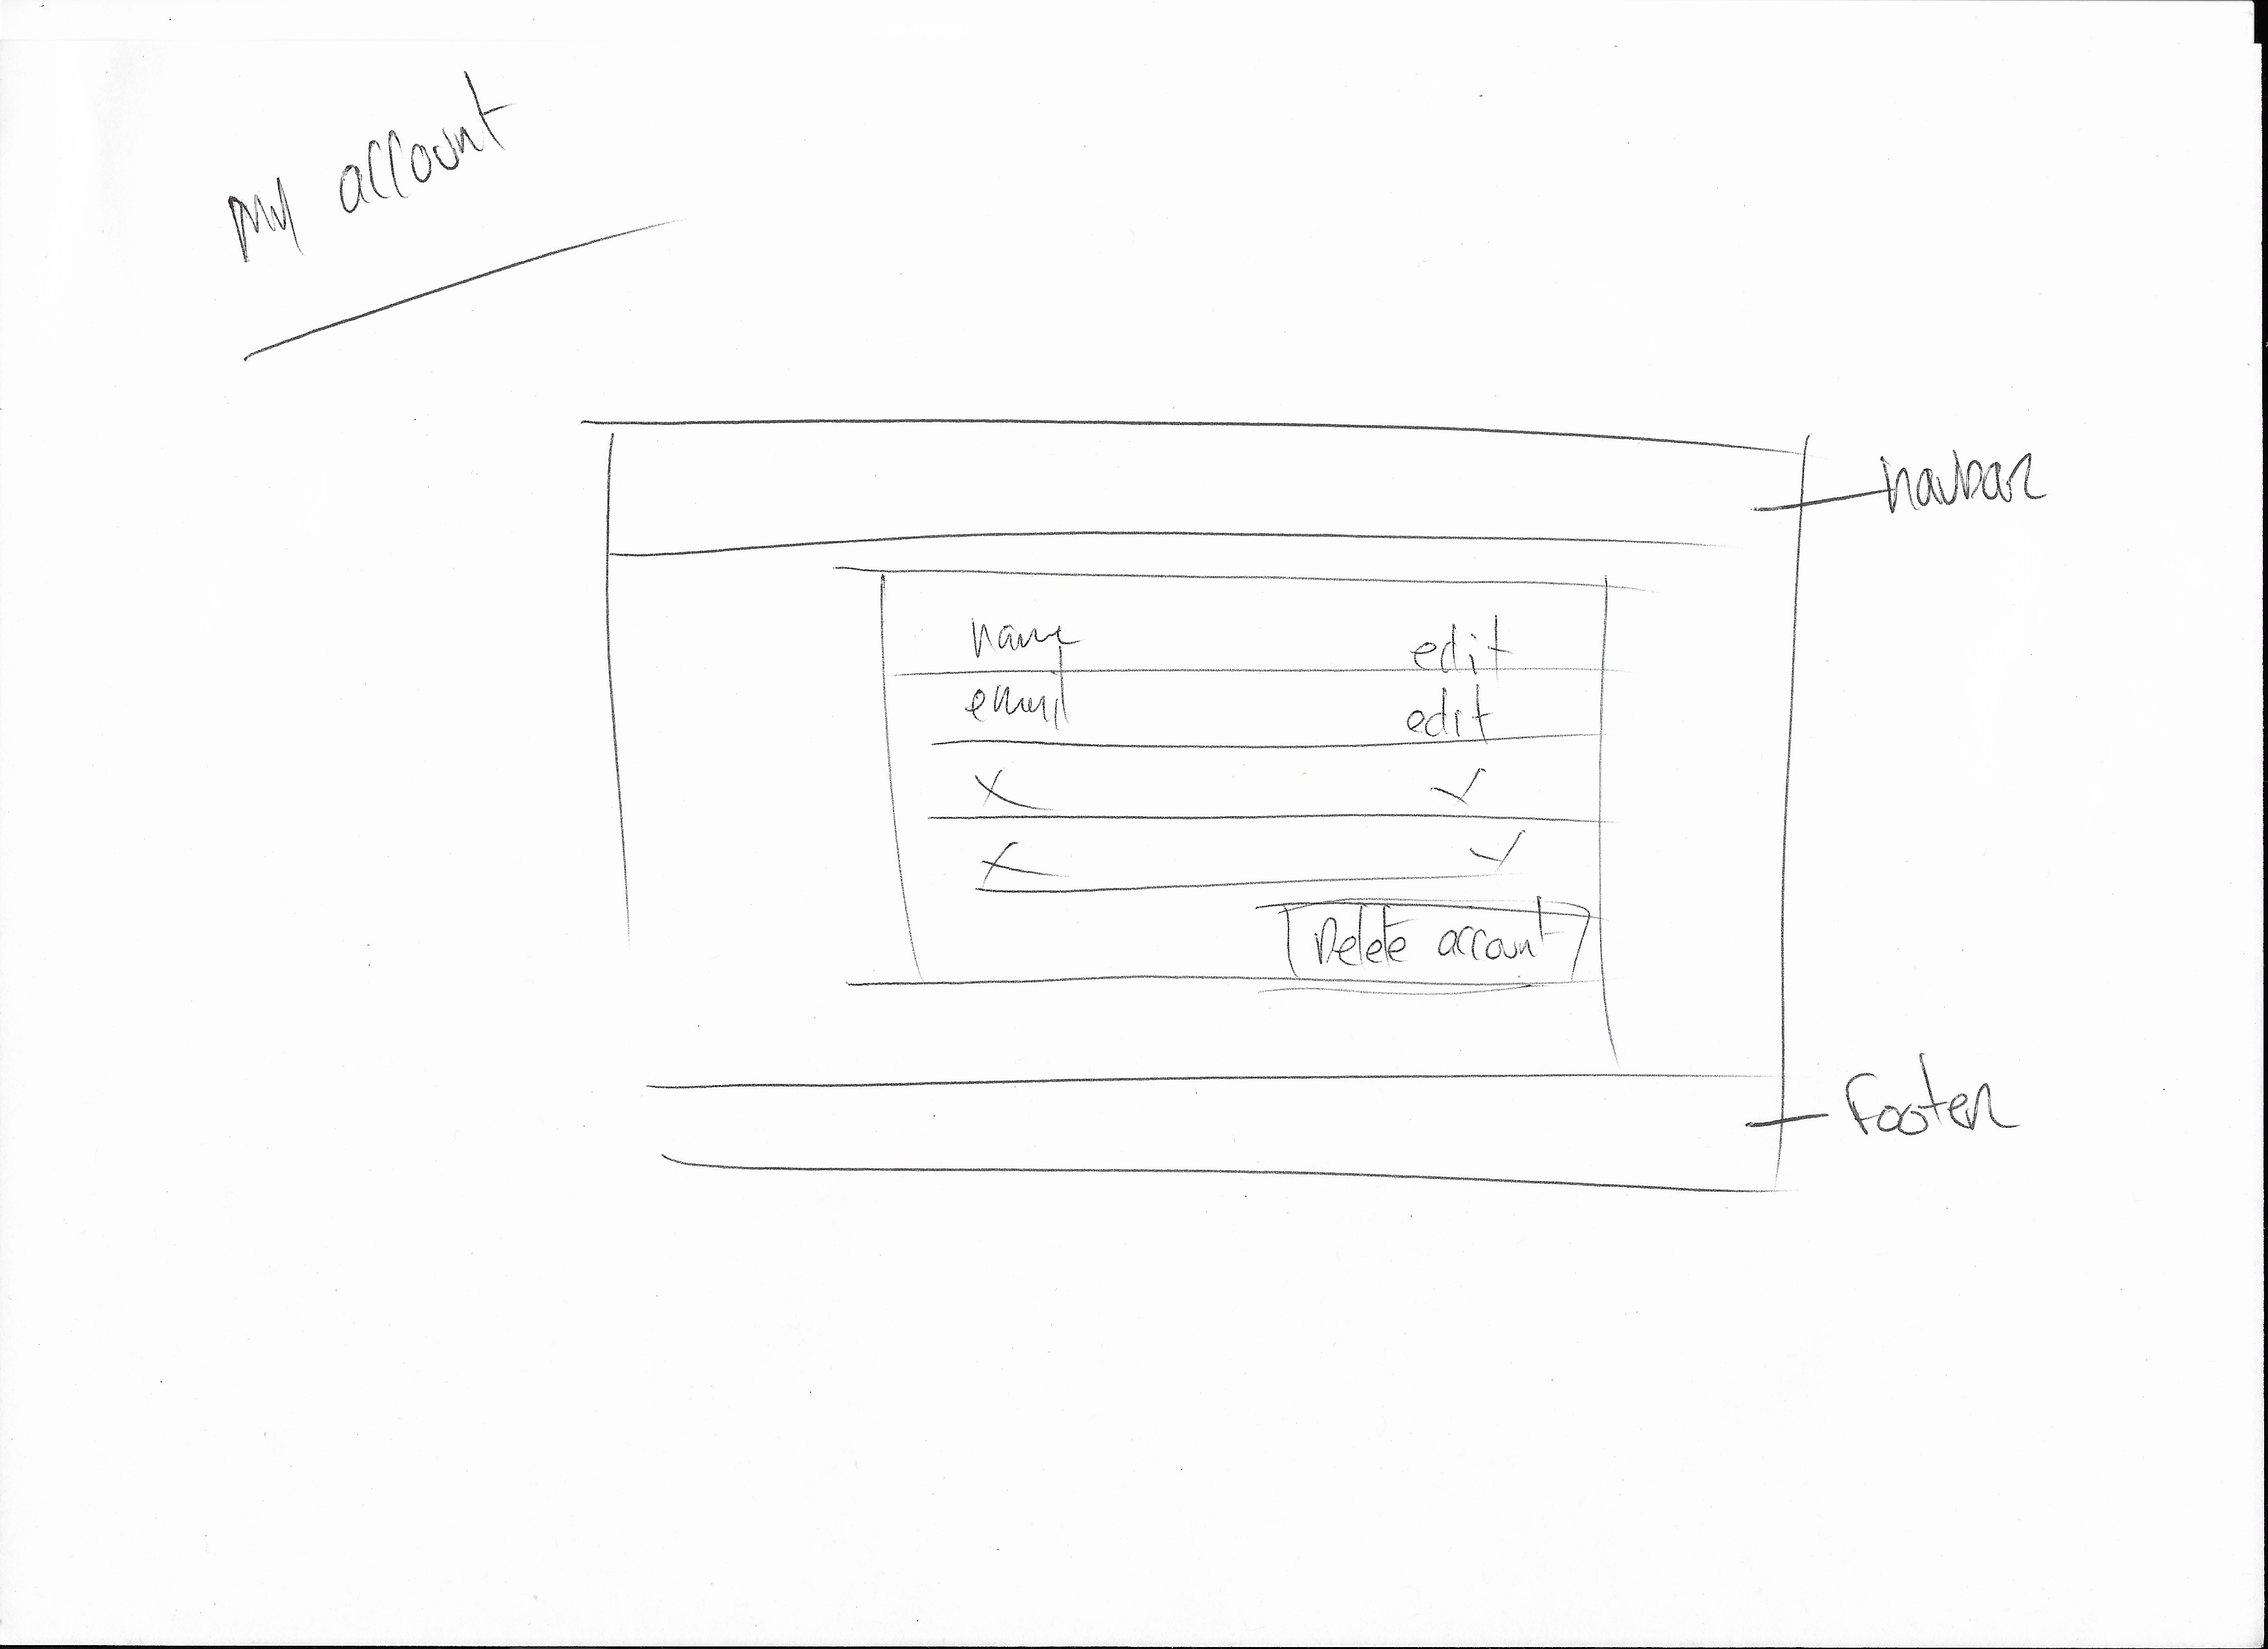 My account
navbar
name edit
email edit
Delete account
Footer